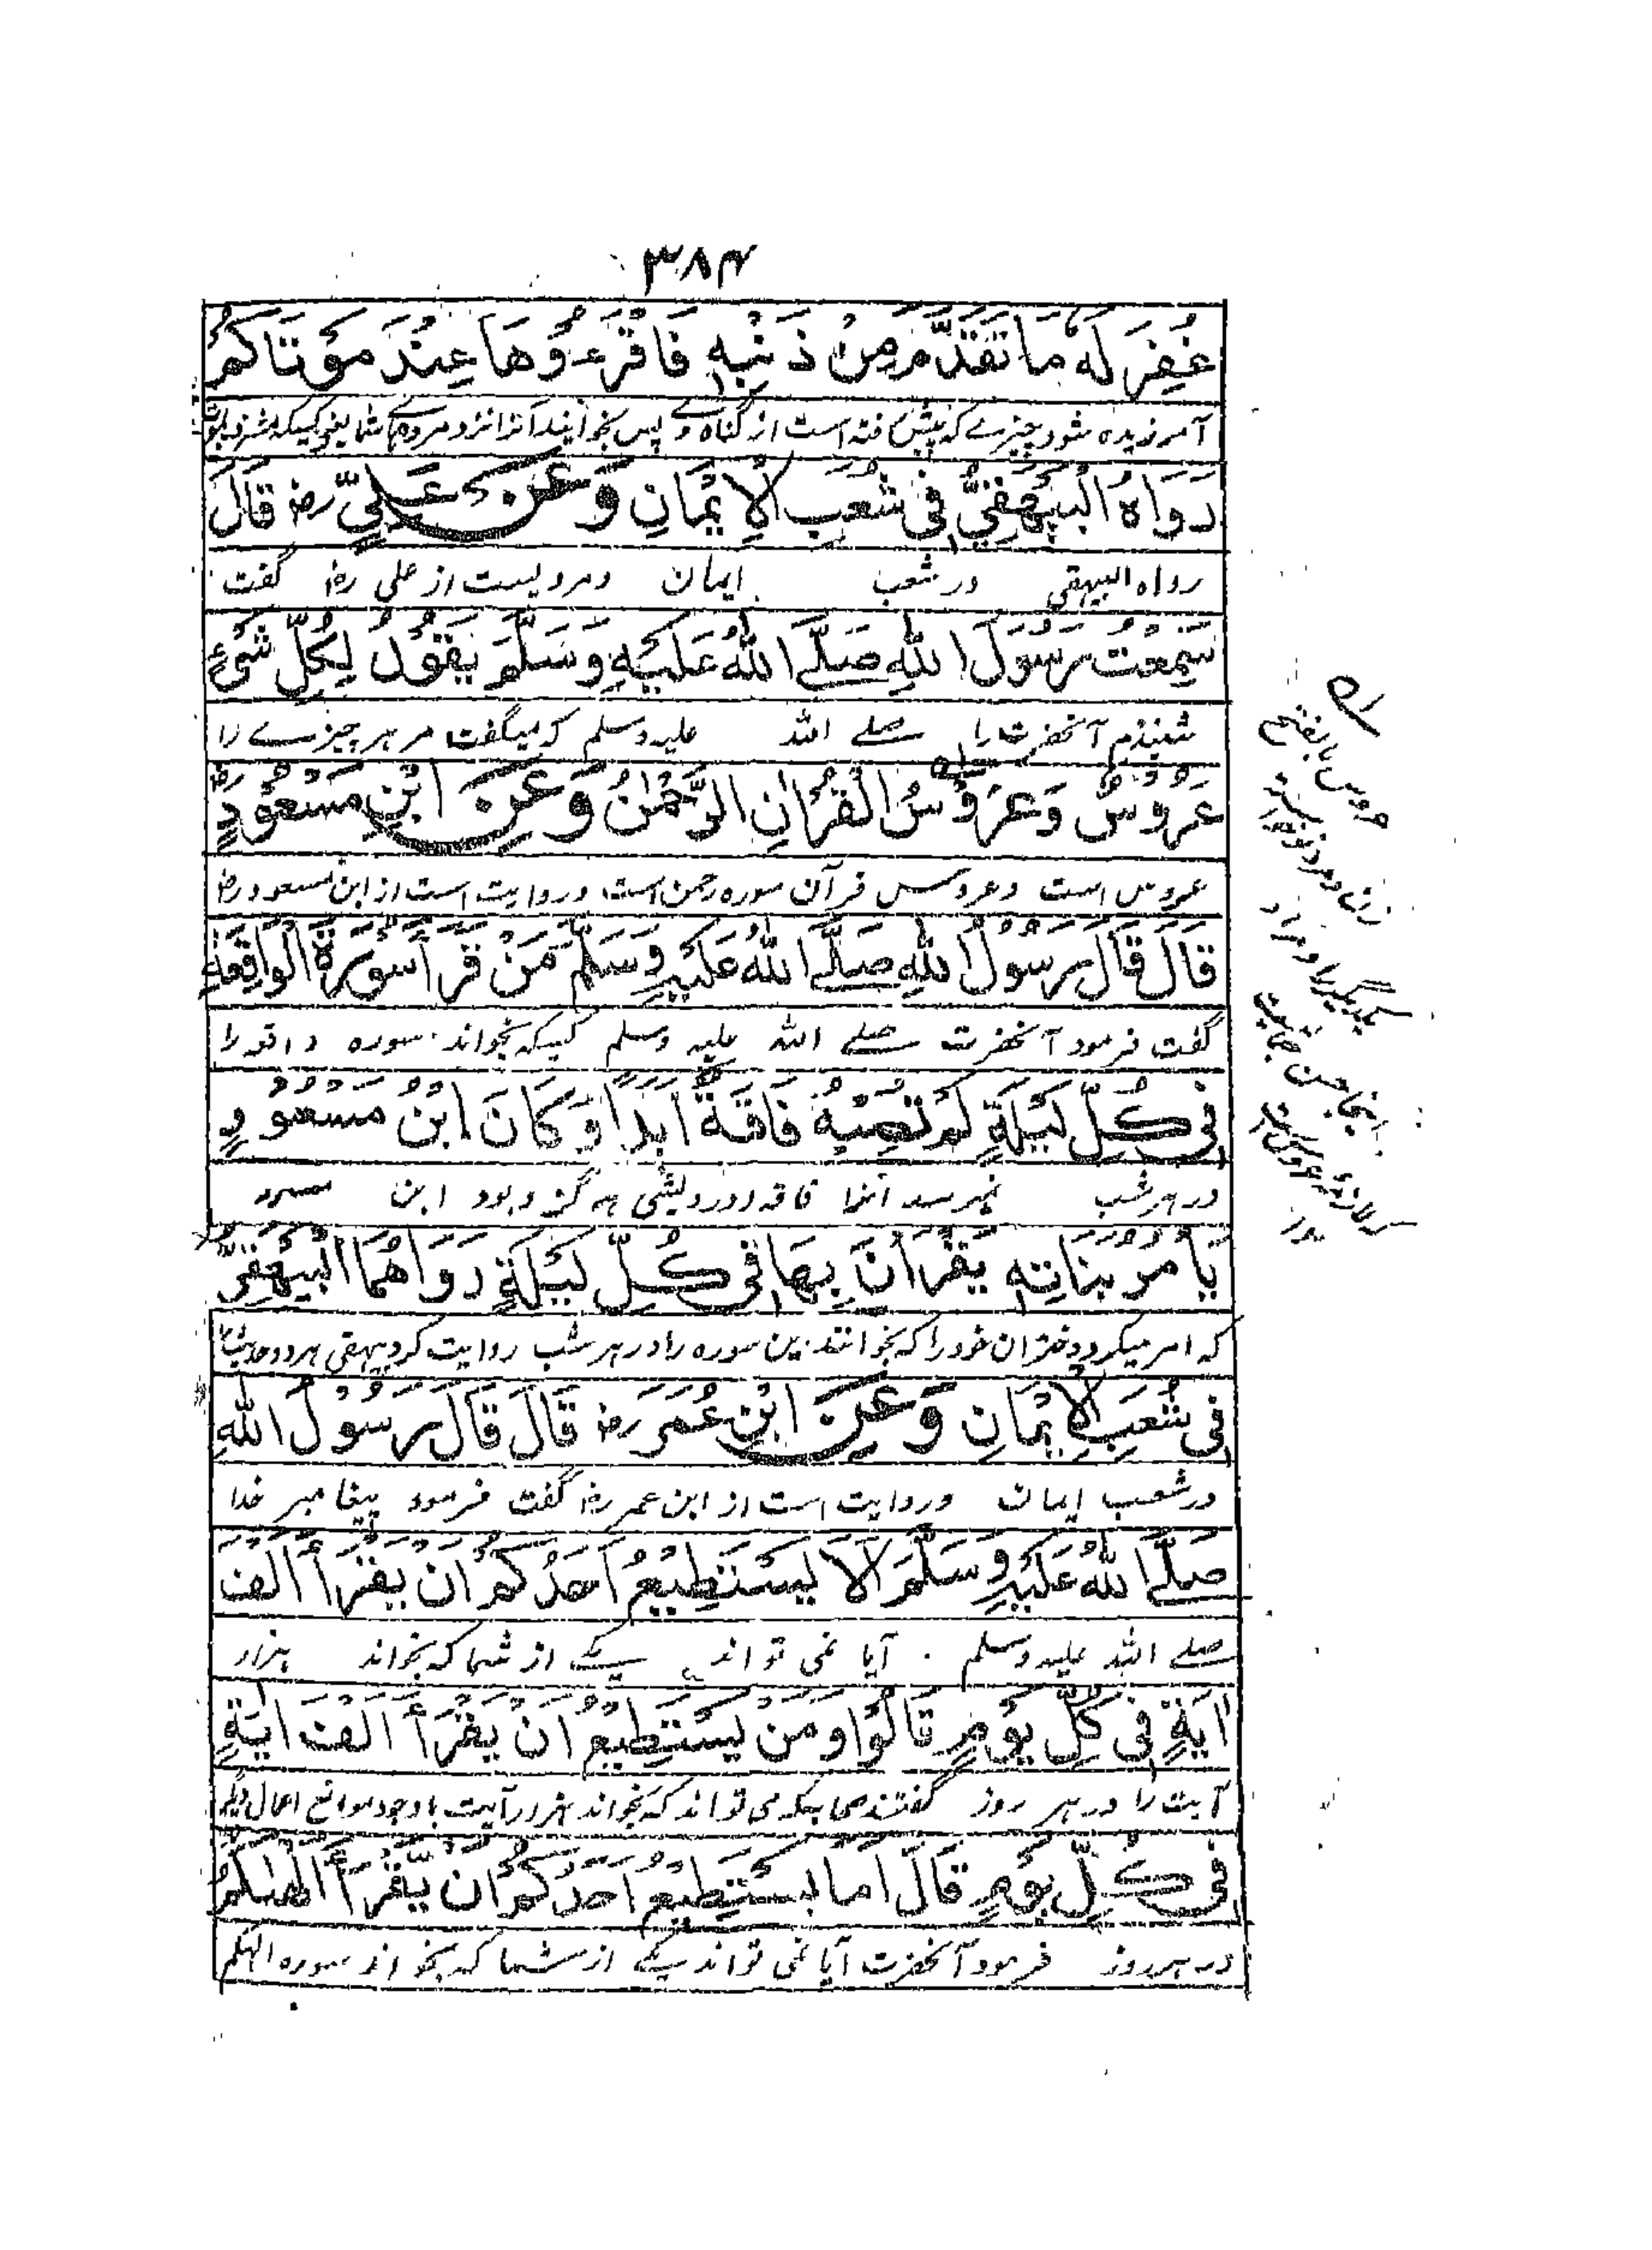 ۳۸۴
غُفِرَ لَهُ مَا تَقَدَّمَ مِنْ ذَنْبِهِ فَاقْرَءُوهَا عِنْدَ مَوْتَاكُمْ
آمرزیده شود چیزے که پیش رفته است از گناه وے پس بخوانید آنرا نزد مردهای شما
رَوَاهُ الْبَيْهَقِيُّ فِي شُعَبِ الْإِيْمَانِ وَعَنْ عَلِيٍّ رض قَالَ
رواه البیهقی در شعب ایمان ومرویست از علی رض گفت
سَمِعْتُ رَسُوْلَ اللّٰهِ صَلَّے اللّٰهُ عَلَيْهِ وَسَلَّمَ يَقُوْلُ لِكُلِّ شَيْءٍ
شنیدم آنحضرت را صلے الله علیه وسلم که میگفت مر هر چیزے را
عَرُوْسٌ وَعَرُوْسُ الْقُرْاٰنِ الرَّحْمٰنُ وَعَنِ ابْنِ مَسْعُوْدٍ رض
عروس است وعروس قرآن سوره رحمن است وروایت است از ابن مسعود رض
قَالَ قَالَ رَسُوْلُ اللّٰهِ صَلَّے اللّٰهُ عَلَيْهِ وَسَلَّمَ مَنْ قَرَأَ سُوْرَةَ الْوَاقِعَةِ
گفت فرمود آنحضرت صلے الله علیه وسلم کسیکه بخواند سوره واقعه را
فِي كُلِّ لَيْلَةٍ لَمْ تُصِبْهُ فَاقَةٌ اَبَدًا وَكَانَ ابْنُ مَسْعُوْدٍ
در هر شب نمیرسد آنرا فاقه ودرویشی هرگز وبود ابن مسعود
يَأْمُرُ بَنَاتِهِ يَقْرَأْنَ بِهَا فِي كُلِّ لَيْلَةٍ رَوَاهُمَا الْبَيْهَقِيُّ
که امر میکرد دختران خود را که بخوانند این سوره را در هر شب روایت کرد بیهقی هر دو حدیث را
فِي شُعَبِ الْإِيْمَانِ وَعَنِ ابْنِ عُمَرَ رض قَالَ قَالَ رَسُوْلُ اللّٰهِ
در شعب ایمان وروایت است از ابن عمر رض گفت فرمود پیغامبر خدا
صَلَّے اللّٰهُ عَلَيْهِ وَسَلَّمَ اَلَا يَسْتَطِيْعُ اَحَدُكُمْ اَنْ يَقْرَأَ اَلْفَ
صلے الله علیه وسلم آیا نمی تواند یکے از شما که بخواند هزار
اٰيَةٍ فِي كُلِّ يَوْمٍ قَالُوْا وَمَنْ يَسْتَطِيْعُ اَنْ يَقْرَأَ اَلْفَ اٰيَةٍ
آیت را در هر روز گفتند صحابه که می تواند که بخواند هزار آیت با وجود موانع اعمال دیگر
فِي كُلِّ يَوْمٍ قَالَ اَمَا يَسْتَطِيْعُ اَحَدُكُمْ اَنْ يَّقْرَأَ اَلْهٰىكُمُ
در هر روز فرمود آنحضرت آیا نمی تواند یکے از شما که بخواند سوره الهکم